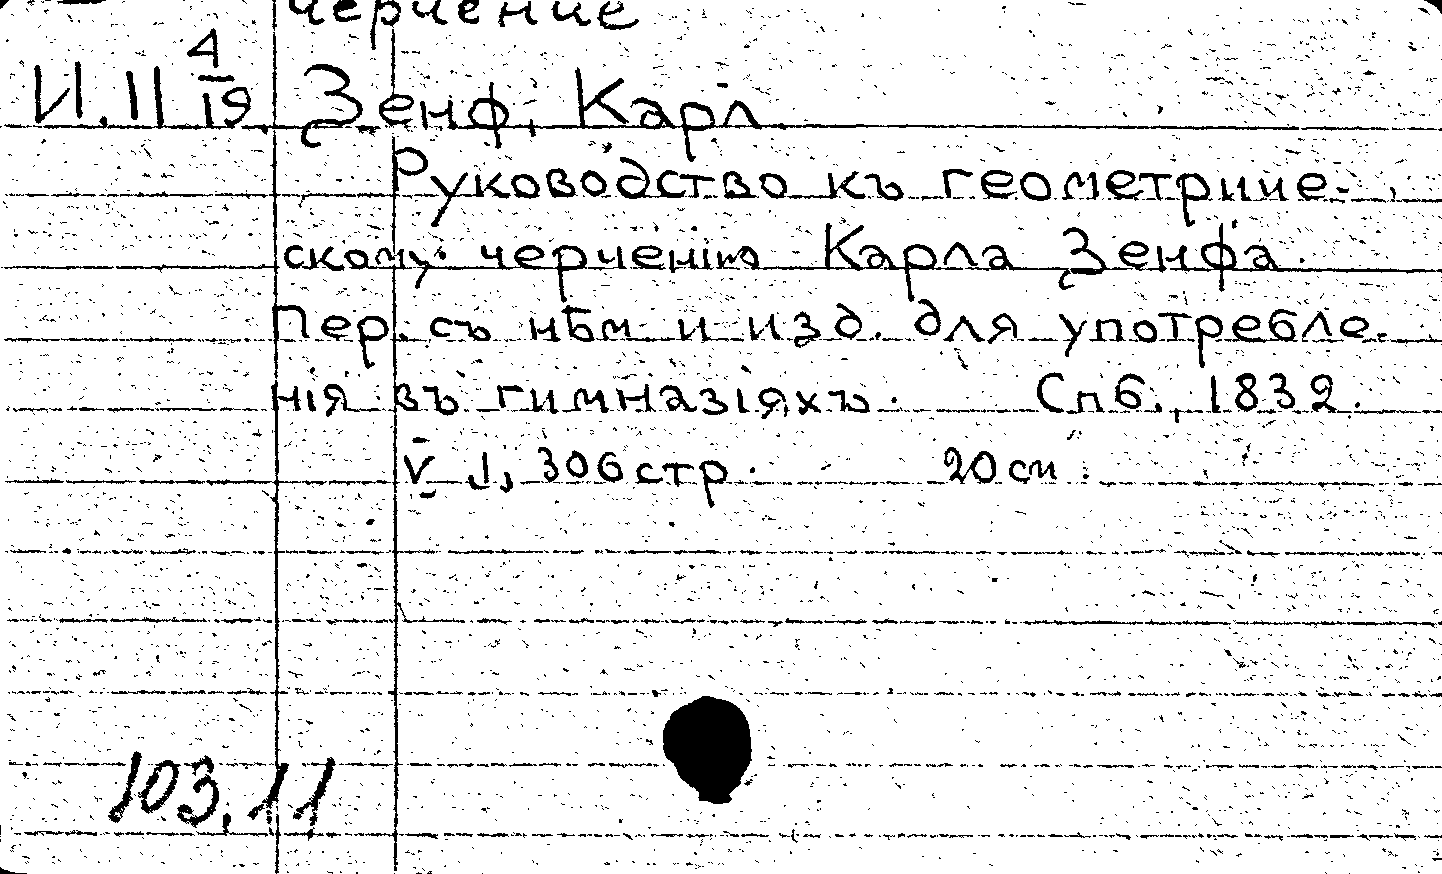 черчение
И.II 4/19. Зенф, Карл
Руководство къ геометриче-
скому черченiю Карла Зенфа.
Пер. съ нѣм и изд. для употребле-
нiя въ гимназiяхъ. Спб., 1832.
V 1, 306 стр. 20 см.
103.11